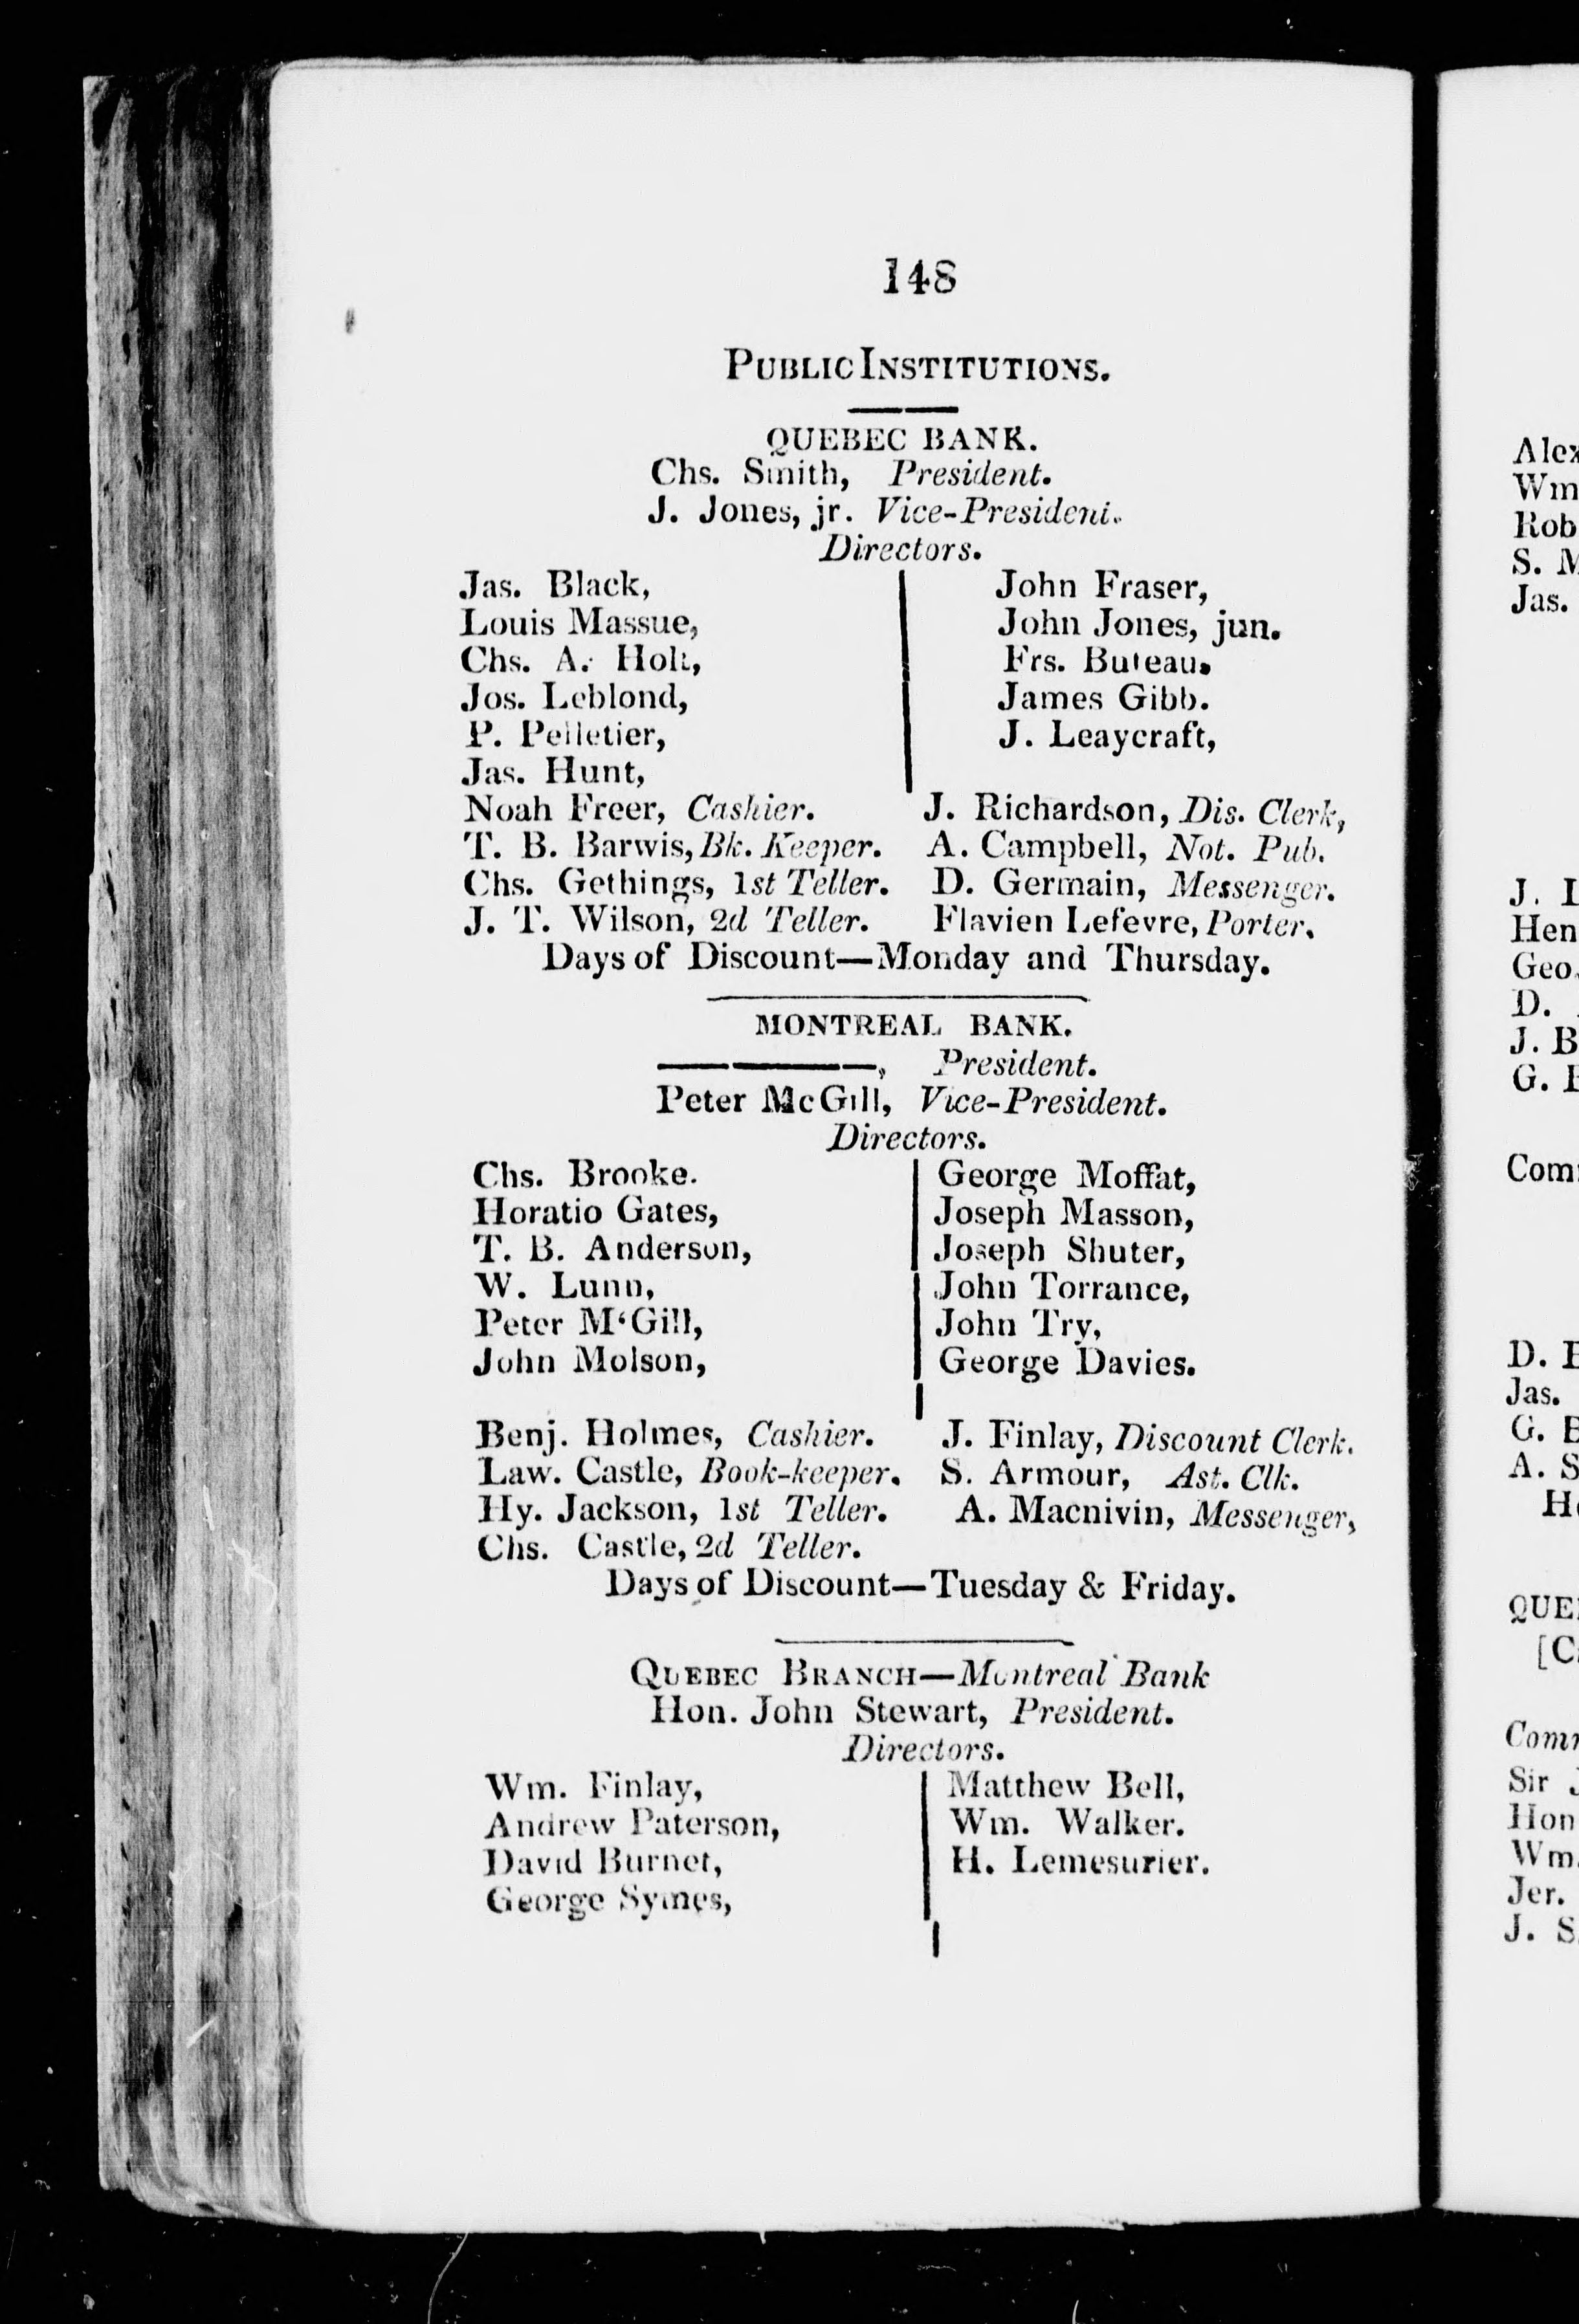 148
PUBLIC INSTITUTIONS.
QUEBEC BANK.
Chs. Smith, President.
J. Jones, jr. Vice-President.
Directors.
Jas. Black,
Louis Massue,
Chs. A. Holt,
Jos. Leblond,
P. Pelletier,
Jas. Hunt,
John Fraser,
John Jones, jun.
Frs. Buteau.
James Gibb.
J. Leaycraft,
Noah Freer, Cashier.
T. B. Barwis, Bk. Keeper.
Chs. Gethings, 1st Teller.
J. T. Wilson, 2d Teller.
J. Richardson, Dis. Clerk,
A. Campbell, Not. Pub.
D. Germain, Messenger.
Flavien Lefevre, Porter.
Days of Discount—Monday and Thursday.
MONTREAL BANK.
———, President.
Peter McGill, Vice-President.
Directors.
Chs. Brooke.
Horatio Gates,
T. B. Anderson,
W. Lunn,
Peter M‘Gill,
John Molson,
George Moffat,
Joseph Masson,
Joseph Shuter,
John Torrance,
John Try,
George Davies.
Benj. Holmes, Cashier.
Law. Castle, Book-keeper.
Hy. Jackson, 1st Teller.
Chs. Castle, 2d Teller.
J. Finlay, Discount Clerk.
S. Armour, Ast. Clk.
A. Macnivin, Messenger,
Days of Discount—Tuesday & Friday.
QUEBEC BRANCH—Montreal Bank
Hon. John Stewart, President.
Directors.
Wm. Finlay,
Andrew Paterson,
David Burnet,
George Symes,
Matthew Bell,
Wm. Walker.
H. Lemesurier.
Alex
Wm
Rob
S. M
Jas.
J. L
Hen
Geo.
D.
J. B
G.
Com
D.
Jas.
G.
A. S
H
QUE
[C
Com
Sir J
Hon
Wm.
Jer.
J. S